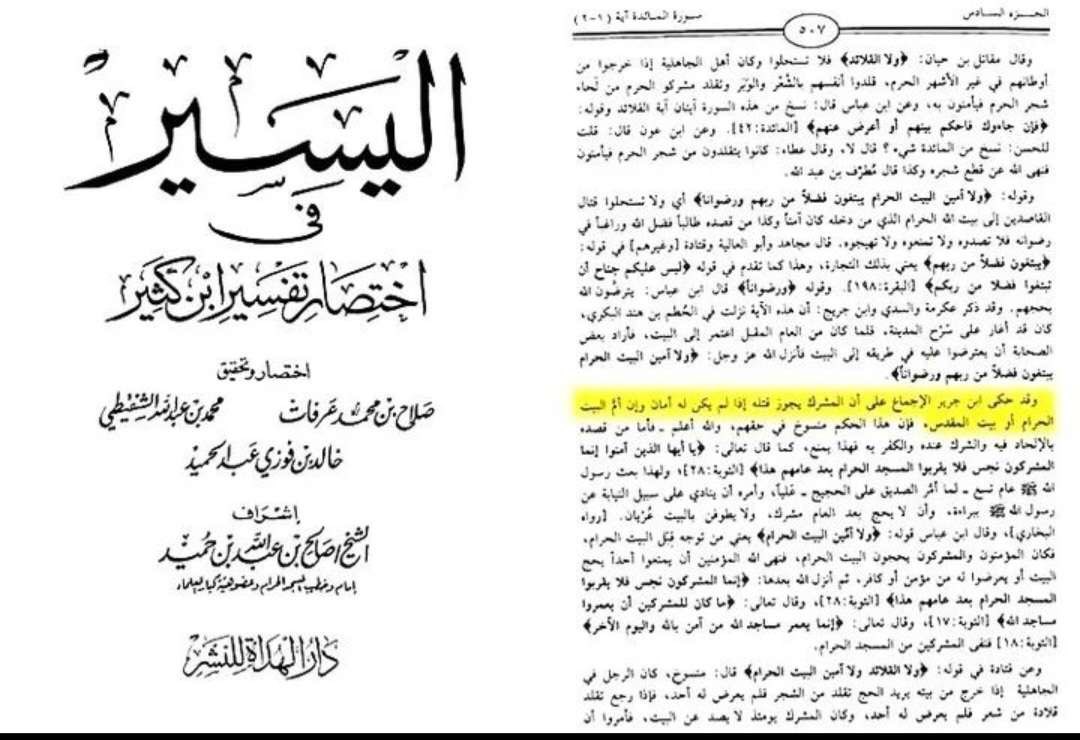 اليسير
في
اختصار تفسير ابن كثير
اختصار وتحقيق
صلاح بن محمد عرفات محمد بن عبدالله الشنقيطي
خالد بن فوزي عبد الحميد
إشراف
الشيخ صالح بن عبدالله بن حميد
إمام وخطيب المسجد الحرام وعضو هيئة كبار العلماء
دار الهداة للنشر
الجزء السادس
٥٠٧
سورة المائدة آية (١-٢)
وقال مقاتل بن حيان: ﴿ولا القلائد﴾ فلا تستحلوا وكان أهل الجاهلية إذا خرجوا من
أوطانهم في غير الأشهر الحرم، قلدوا أنفسهم بالشَّعْر والوَبَر وتقلد مشركو الحرم من لَحاء
شجر الحرم فيأمنون به، وعن ابن عباس قال: نسخ من هذه السورة آيتان آية القلائد وقوله:
﴿فإن جاءوك فاحكم بينهم أو أعرض عنهم﴾ [المائدة:٤٢]. وعن ابن عون قال: قلت
للحسن: نسخ من المائدة شيء؟ قال لا، وقال عطاء: كانوا يتقلدون من شجر الحرم فيأمنون
فنهى الله عن قطع شجره وكذا قال مُطَرِّف بن عبد الله.
وقوله: ﴿ولا آمين البيت الحرام يبتغون فضلاً من ربهم ورضوانا﴾ أي ولا تستحلوا قتال
القاصدين إلى بيت الله الحرام الذي من دخله كان آمناً وكذا من قصده طالباً فضل الله وراغباً في
رضوانه فلا تصدوه ولا تمنعوه ولا تهيجوه. قال مجاهد وأبو العالية وقتادة [وغيرهم] في قوله:
﴿يبتغون فضلاً من ربهم﴾ يعني بذلك التجارة، وهذا كما تقدم في قوله ﴿ليس عليكم جناح أن
تبتغوا فضلا من ربكم﴾ [البقرة:١٩٨]. وقوله ﴿ورضواناً﴾ قال ابن عباس: يترضَّون الله
بحجهم. وقد ذكر عكرمة والسدي وابن جريج: أن هذه الآية نزلت في الحُطَم بن هند البكري،
كان قد أغار على سَرْح المدينة، فلما كان من العام المقبل اعتمر إلى البيت، فأراد بعض
الصحابة أن يعترضوا عليه في طريقه إلى البيت فأنزل الله عز وجل: ﴿ولا آمين البيت الحرام
يبتغون فضلاً من ربهم ورضواناً﴾.
وقد حكى ابن جرير الإجماع على أن المشرك يجوز قتله إذا لم يكن له أمان وإن أمَّ البيت
الحرام أو بيت المقدس، فإن هذا الحكم منسوخ في حقهم، والله أعلم ـ فأما من قصده
بالإلحاد فيه والشرك عنده والكفر به فهذا يمنع، كما قال تعالى: ﴿يا أيها الذين آمنوا إنما
المشركون نجس فلا يقربوا المسجد الحرام بعد عامهم هذا﴾ [التوبة:٢٨]؛ ولهذا بعث رسول
الله ﷺ عام تسع ـ لما أمَّر الصديق على الحجيج ـ عَلياً، وأمره أن ينادي على سبيل النيابة عن
رسول الله ﷺ ببراءة، وأن لا يحج بعد العام مشرك، ولا يطوفن بالبيت عُرْيان. [رواه
البخاري]، وقال ابن عباس قوله: ﴿ولا آمِّين البيت الحرام﴾ يعني من توجه قِبَل البيت الحرام،
فكان المؤمنون والمشركون يحجون البيت الحرام، فنهى الله المؤمنين أن يمنعوا أحداً يحج
البيت أو يعرضوا له من مؤمن أو كافر، ثم أنزل الله بعدها: ﴿إنما المشركون نجس فلا يقربوا
المسجد الحرام بعد عامهم هذا﴾ [التوبة:٢٨]، وقال تعالى: ﴿ما كان للمشركين أن يعمروا
مساجد الله﴾ [التوبة:١٧]، وقال تعالى: ﴿إنما يعمر مساجد الله من آمن بالله واليوم الآخر﴾
[التوبة:١٨] فنفى المشركين من المسجد الحرام.
وعن قتادة في قوله: ﴿ولا القلائد ولا آمين البيت الحرام﴾ قال: منسوخ، كان الرجل في
الجاهلية إذا خرج من بيته يريد الحج تقلد من الشجر فلم يعرض له أحد، فإذا رجع تقلد
قلادة من شعر فلم يعرض له أحد، وكان المشرك يومئذ لا يصد عن البيت، فأمروا أن